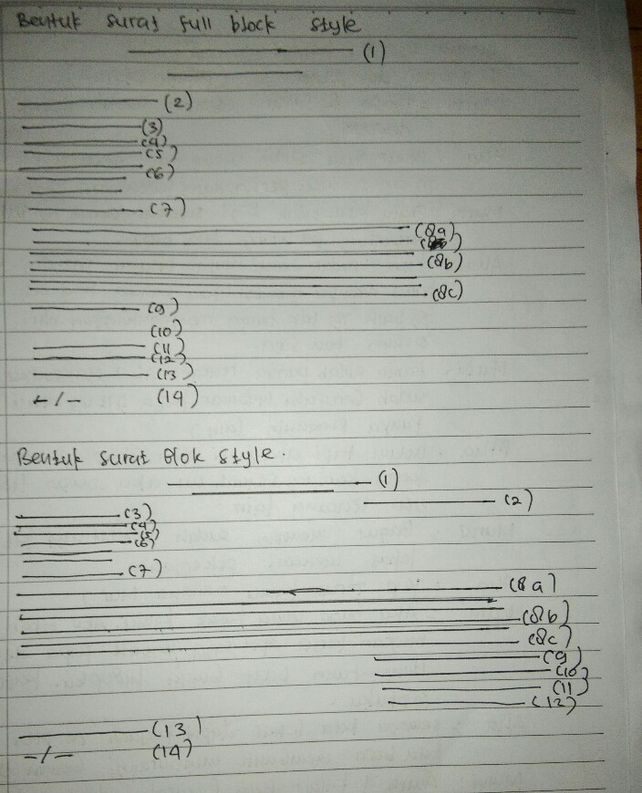 Bentuk surat full block style
(1)
(2)
(3)
(4)
(5)
(6)
(7)
(8a)
(8b)
(8c)
(9)
(10)
(11)
(12)
(13)
-/- (14)
Bentuk surat Blok style.
(1)
(2)
(3)
(4)
(5)
(6)
(7)
(8a)
(8b)
(8c)
(9)
(10)
(11)
(12)
(13)
-/- (14)